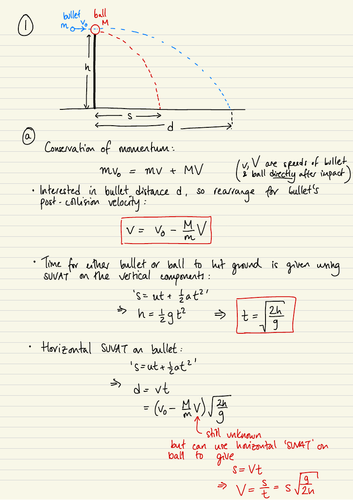 ①
bullet ball
m v₀ M
h
s
d
ⓐ Conservation of momentum:
mv₀ = mv + MV
(v, V are speeds of bullet
& ball directly after impact)
• Interested in bullet distance d, so rearrange for bullet's
post-collision velocity:
v = v₀ - M/m V
• Time for either bullet or ball to hit ground is given using
SUVAT on the vertical components:
's = ut + ½at²'
⇒ h = ½gt² ⇒ t = √(2h/g)
• Horizontal SUVAT on bullet:
's=ut+½at²'
⇒ d = vt
= (v₀ - M/m V)√(2h/g)
still unknown
but can use horizontal 'SUVAT' on
ball to give
s = Vt
⇒ V = s/t = s√(g/2h)